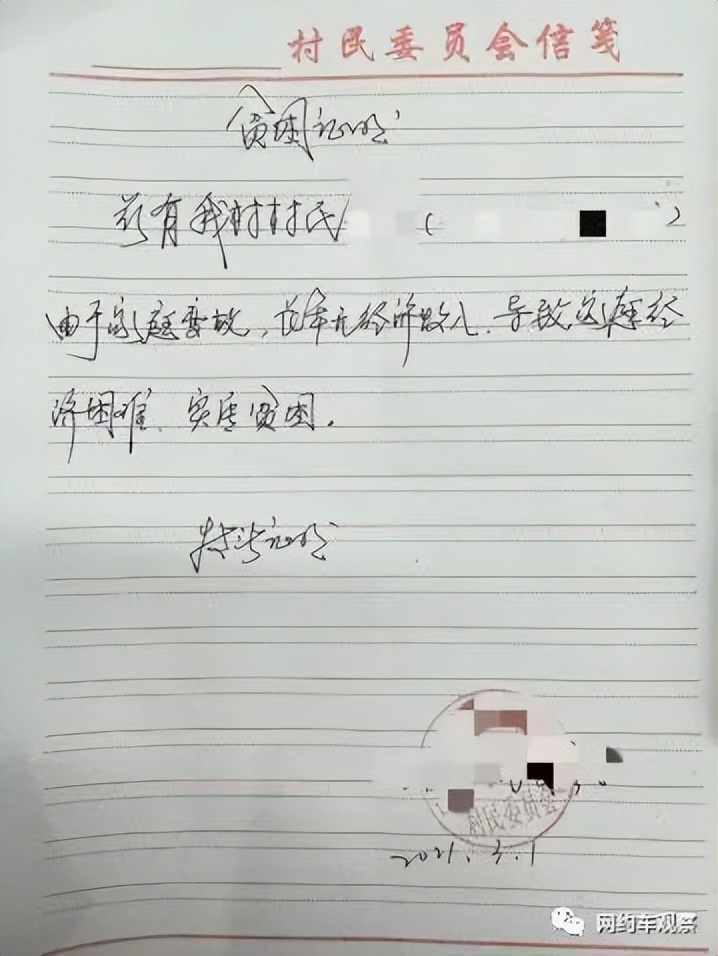 村民委员会信笺
贫困证明
兹有我村村民 ( )
由于家庭变故，常年无经济收入、导致家庭经
济困难、实属贫困。
特此证明
村民委员会
2021.3.1
网约车观察